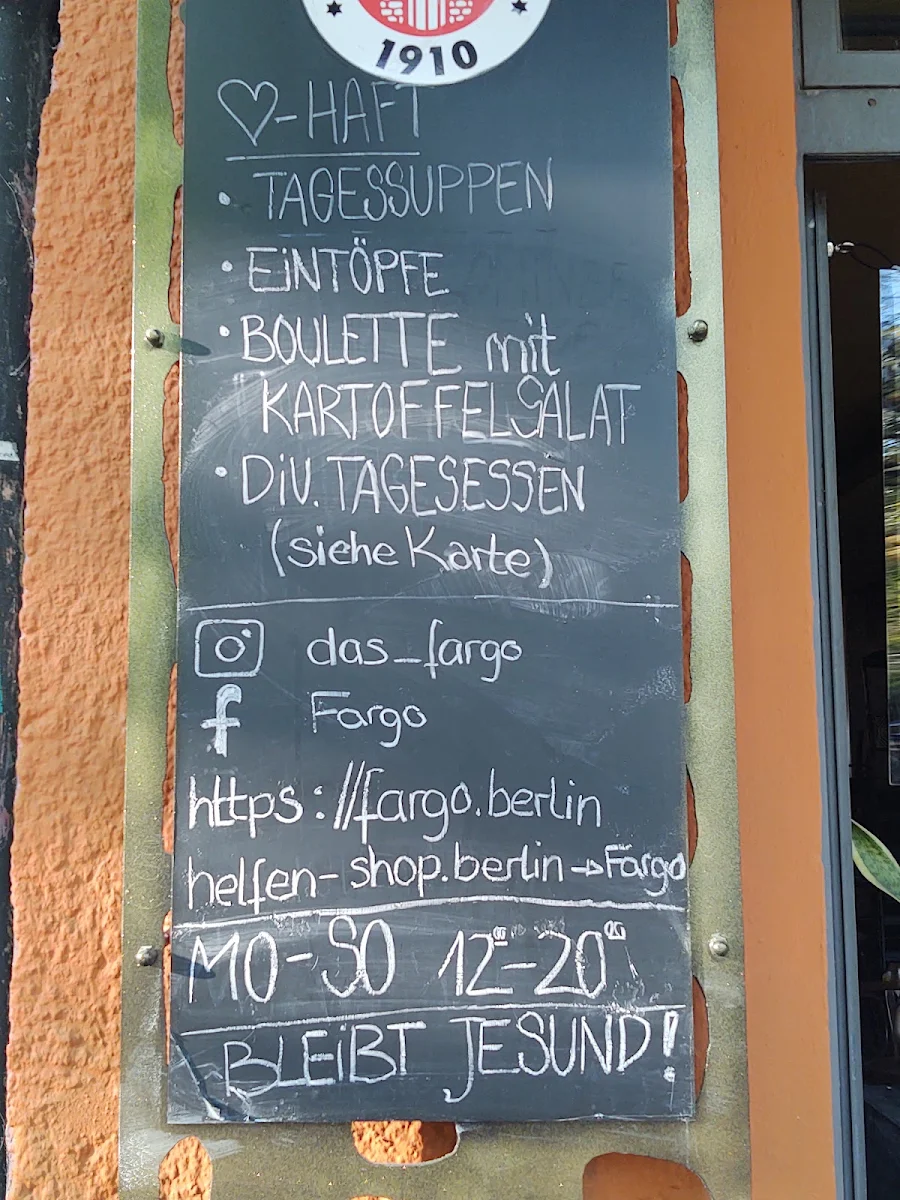 1910
♡-HAFT
• TAGESSUPPEN
• EiNTÖPFE
• BOULETTE mit
KARTOFFELSALAT
• DiV. TAGESESSEN
(siehe Karte)
das_fargo
f Fargo
https://fargo.berlin
helfen-shop.berlin→Fargo
MO-SO 12⁰⁰-20⁰⁰
BLEiBT JESUND!